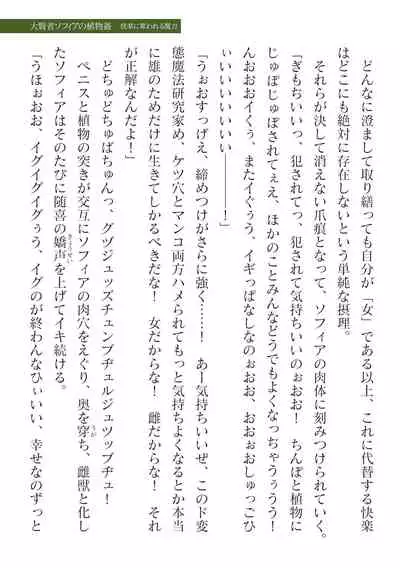 大賢者ソフィアの植物姦　快楽に奪われる魔力
どんなに澄まして取り繕っても自分が「女」である以上、これに代替する快楽
はどこにも絶対に存在しないという単純な摂理。
それらが決して消えない爪痕となって、ソフィアの肉体に刻みつけられていく。
「きもちいいっ、犯されてっ、犯されて気持ちいいのぉおお！　ちんぽと植物に
じゅぽじゅぽされてぇえ、ほかのことみんなどうでもよくなっちゃうぅうう！
んおおおイくぅ、またイぐぅう、イギっぱなしなのぉおお、おおぉおしゅっごひ
ぃいいいいいいい――――――！」
「うぉおすっげえ、締めつけがさらに強く……！　あー気持ちいいぜ、このド変
態魔法研究家め、ケツ穴とマンコ両方ハメられてもっと気持ちよくなるとか本当
に雄のためだけに生きてしかるべきだな！　女だからな！　雌だからな！　それ
が正解なんだよ！」
どちゅどちゅばちゅんっ、グヅジュッズチュンブヂュルジュツップヂュ！
ペニスと植物の突きが交互にソフィアの肉穴をえぐり、奥を穿ち、雌獣と化し
たソフィアはそのたびに随喜の嬌声を上げてイキ続ける。
「うほぉおお、イグイグイグぅう、イグのが終わんなひぃいい、幸せなのずっと